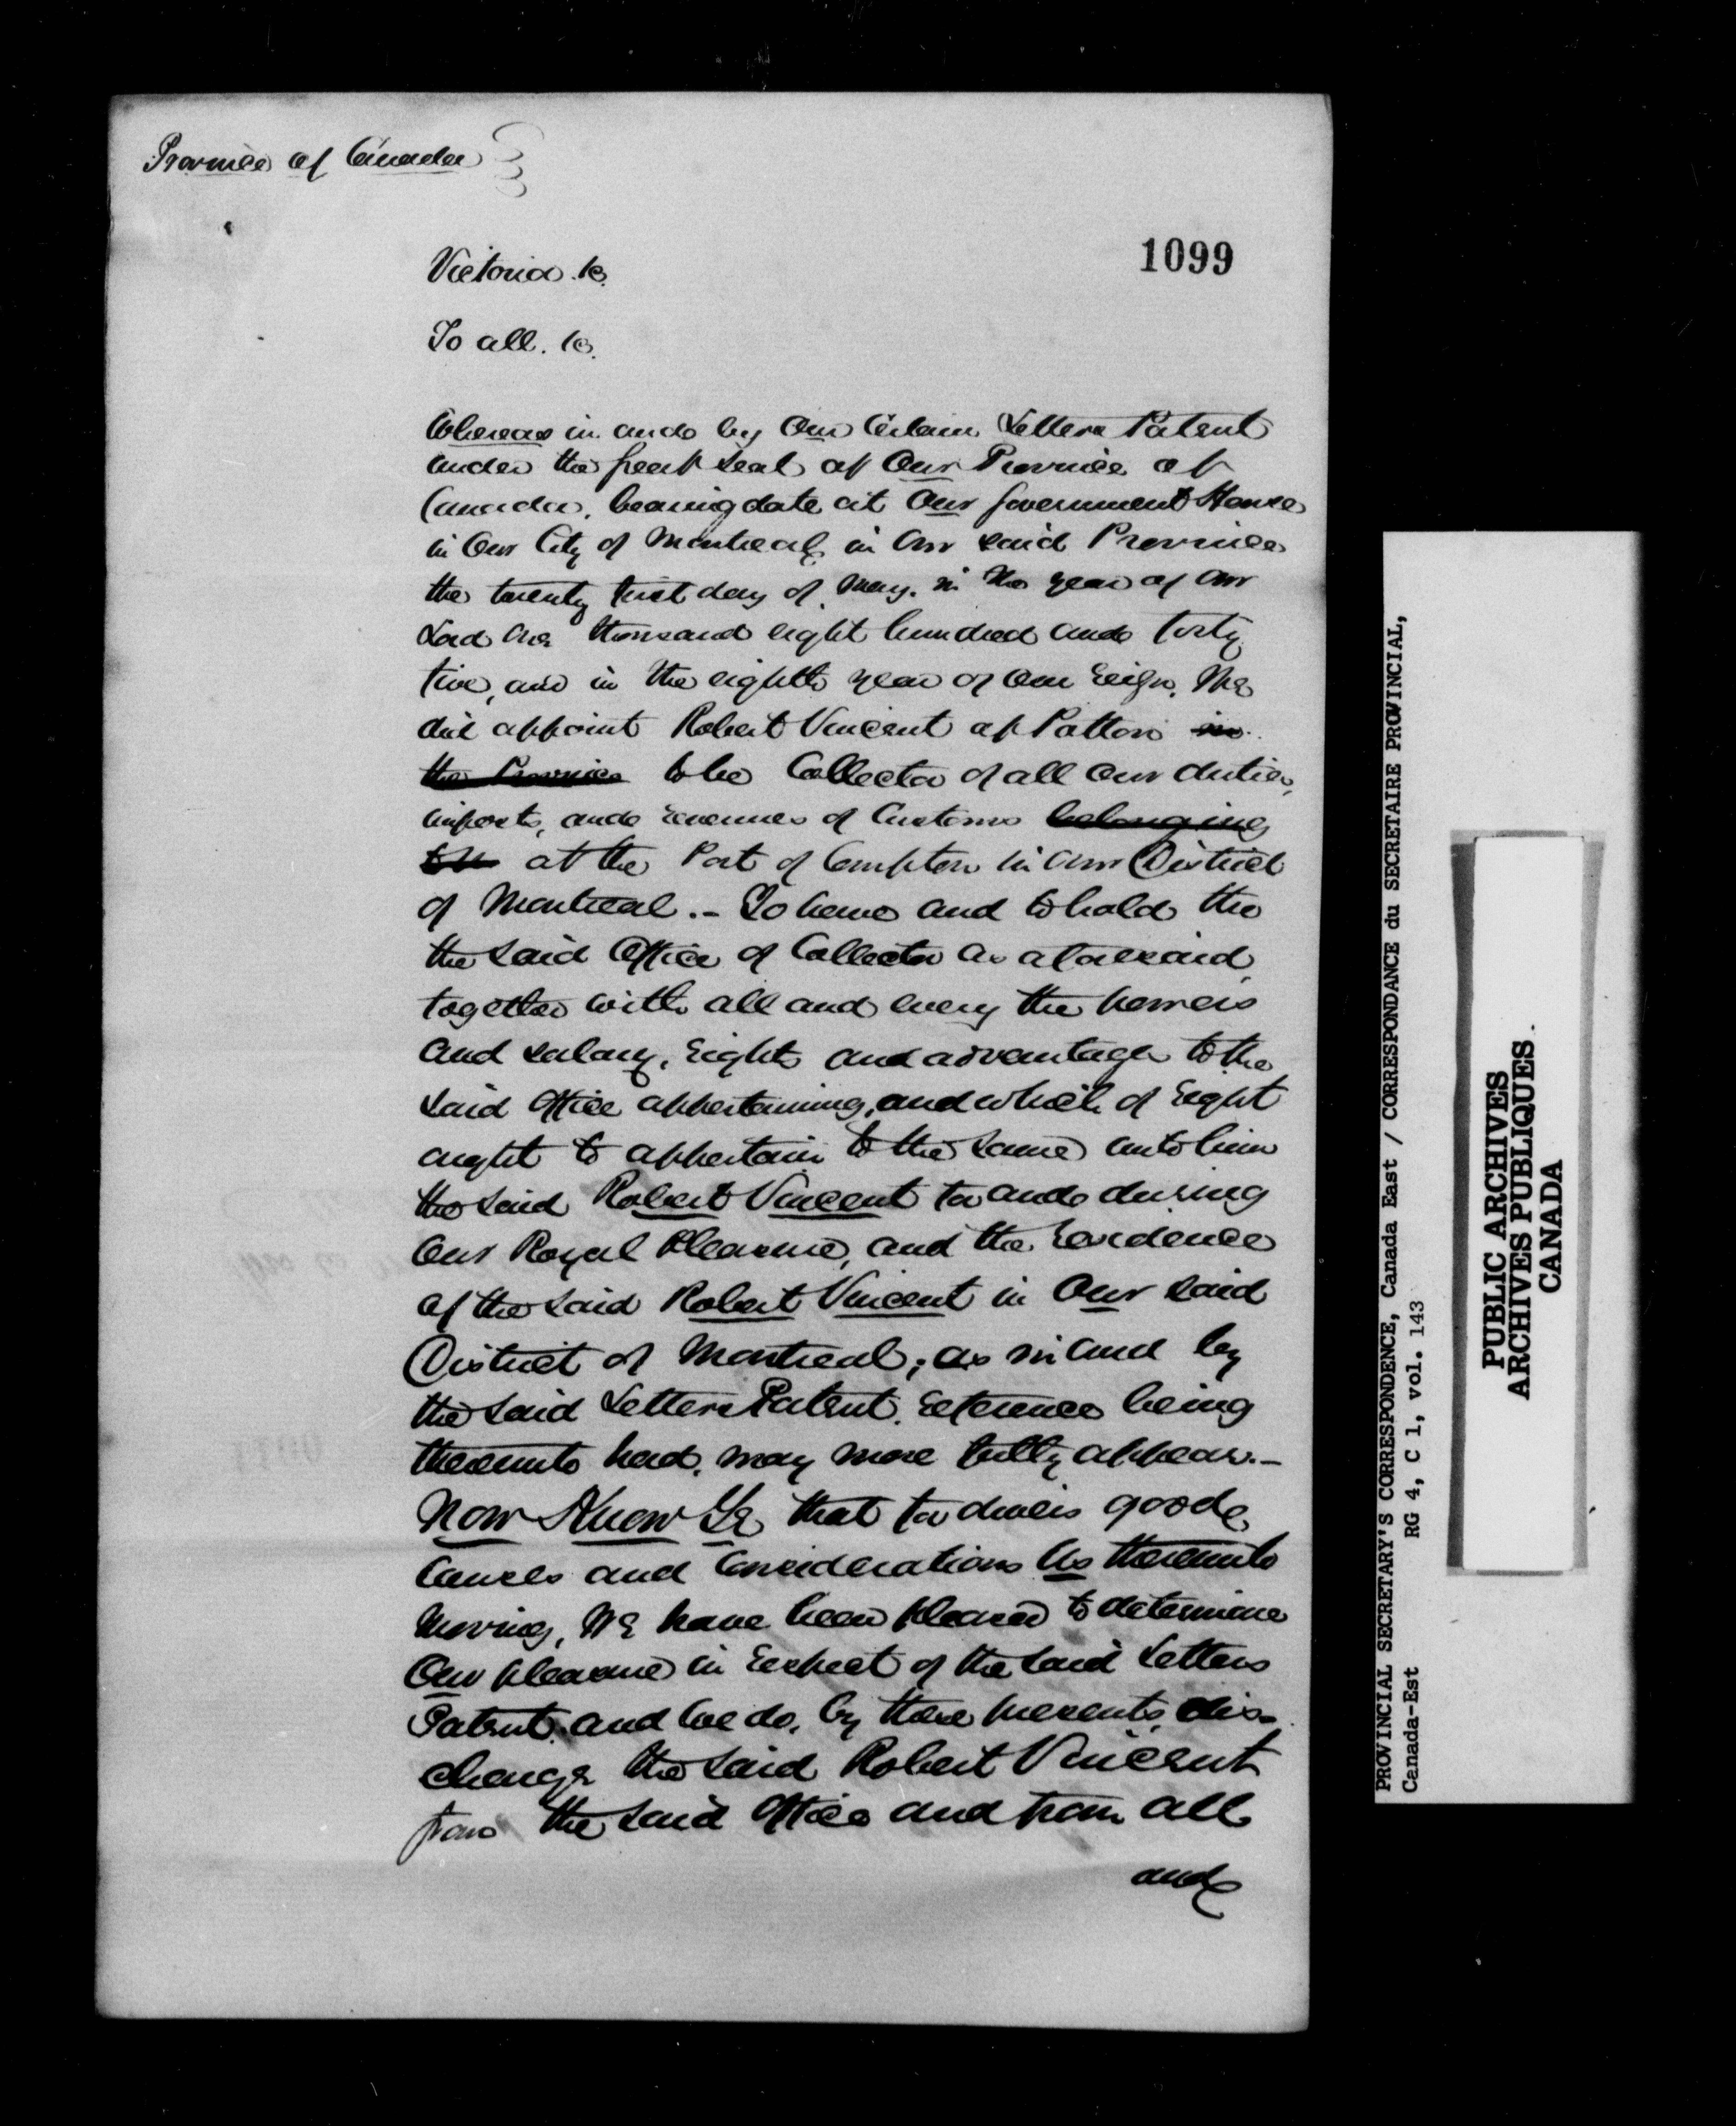 Province of Canada
1099
Victoria &c.
To all. &c.
Whereas in and by Our Certain Letters Patent
under the great seal of Our Province of
Canada, bearing date at Our Government House
in Our City of Montreal, in Our said Province
the twenty first day of May, in the year of Our
Lord One thousand eight hundred and forty
five, and in the eighth year of Our Reign, We
did appoint Robert Vincent of Potton in
the Province to be Collector of all Our duties,
imposts, and revenues of Customs belonging
to at the Port of Compton in Our District
of Montreal. - To have and to hold the
the said Office of Collector as aforesaid,
together with all and every the powers
and salary, rights and advantages to the
said Office appertaining, and which of right
ought to appertain to the same unto him
the said Robert Vincent for and during
Our Royal Pleasure, and the residence
of the said Robert Vincent in Our said
District of Montreal; as in and by
the said Letters Patent, reference being
thereunto had, may more fully appear. -
Now Know Ye that for divers good
causes and Considerations Us thereunto
Moving, We have been pleased to determine
Our pleasure in respect of the said Letters
Patent, and We do, by these presents, dis-
charge the said Robert Vincent
from the said Office and from all
and
PROVINCIAL SECRETARY'S CORRESPONDENCE, Canada East / CORRESPONDANCE du SECRETAIRE PROVINCIAL,
Canada-Est RG 4, C 1, vol. 143
PUBLIC ARCHIVES
ARCHIVES PUBLIQUES
CANADA